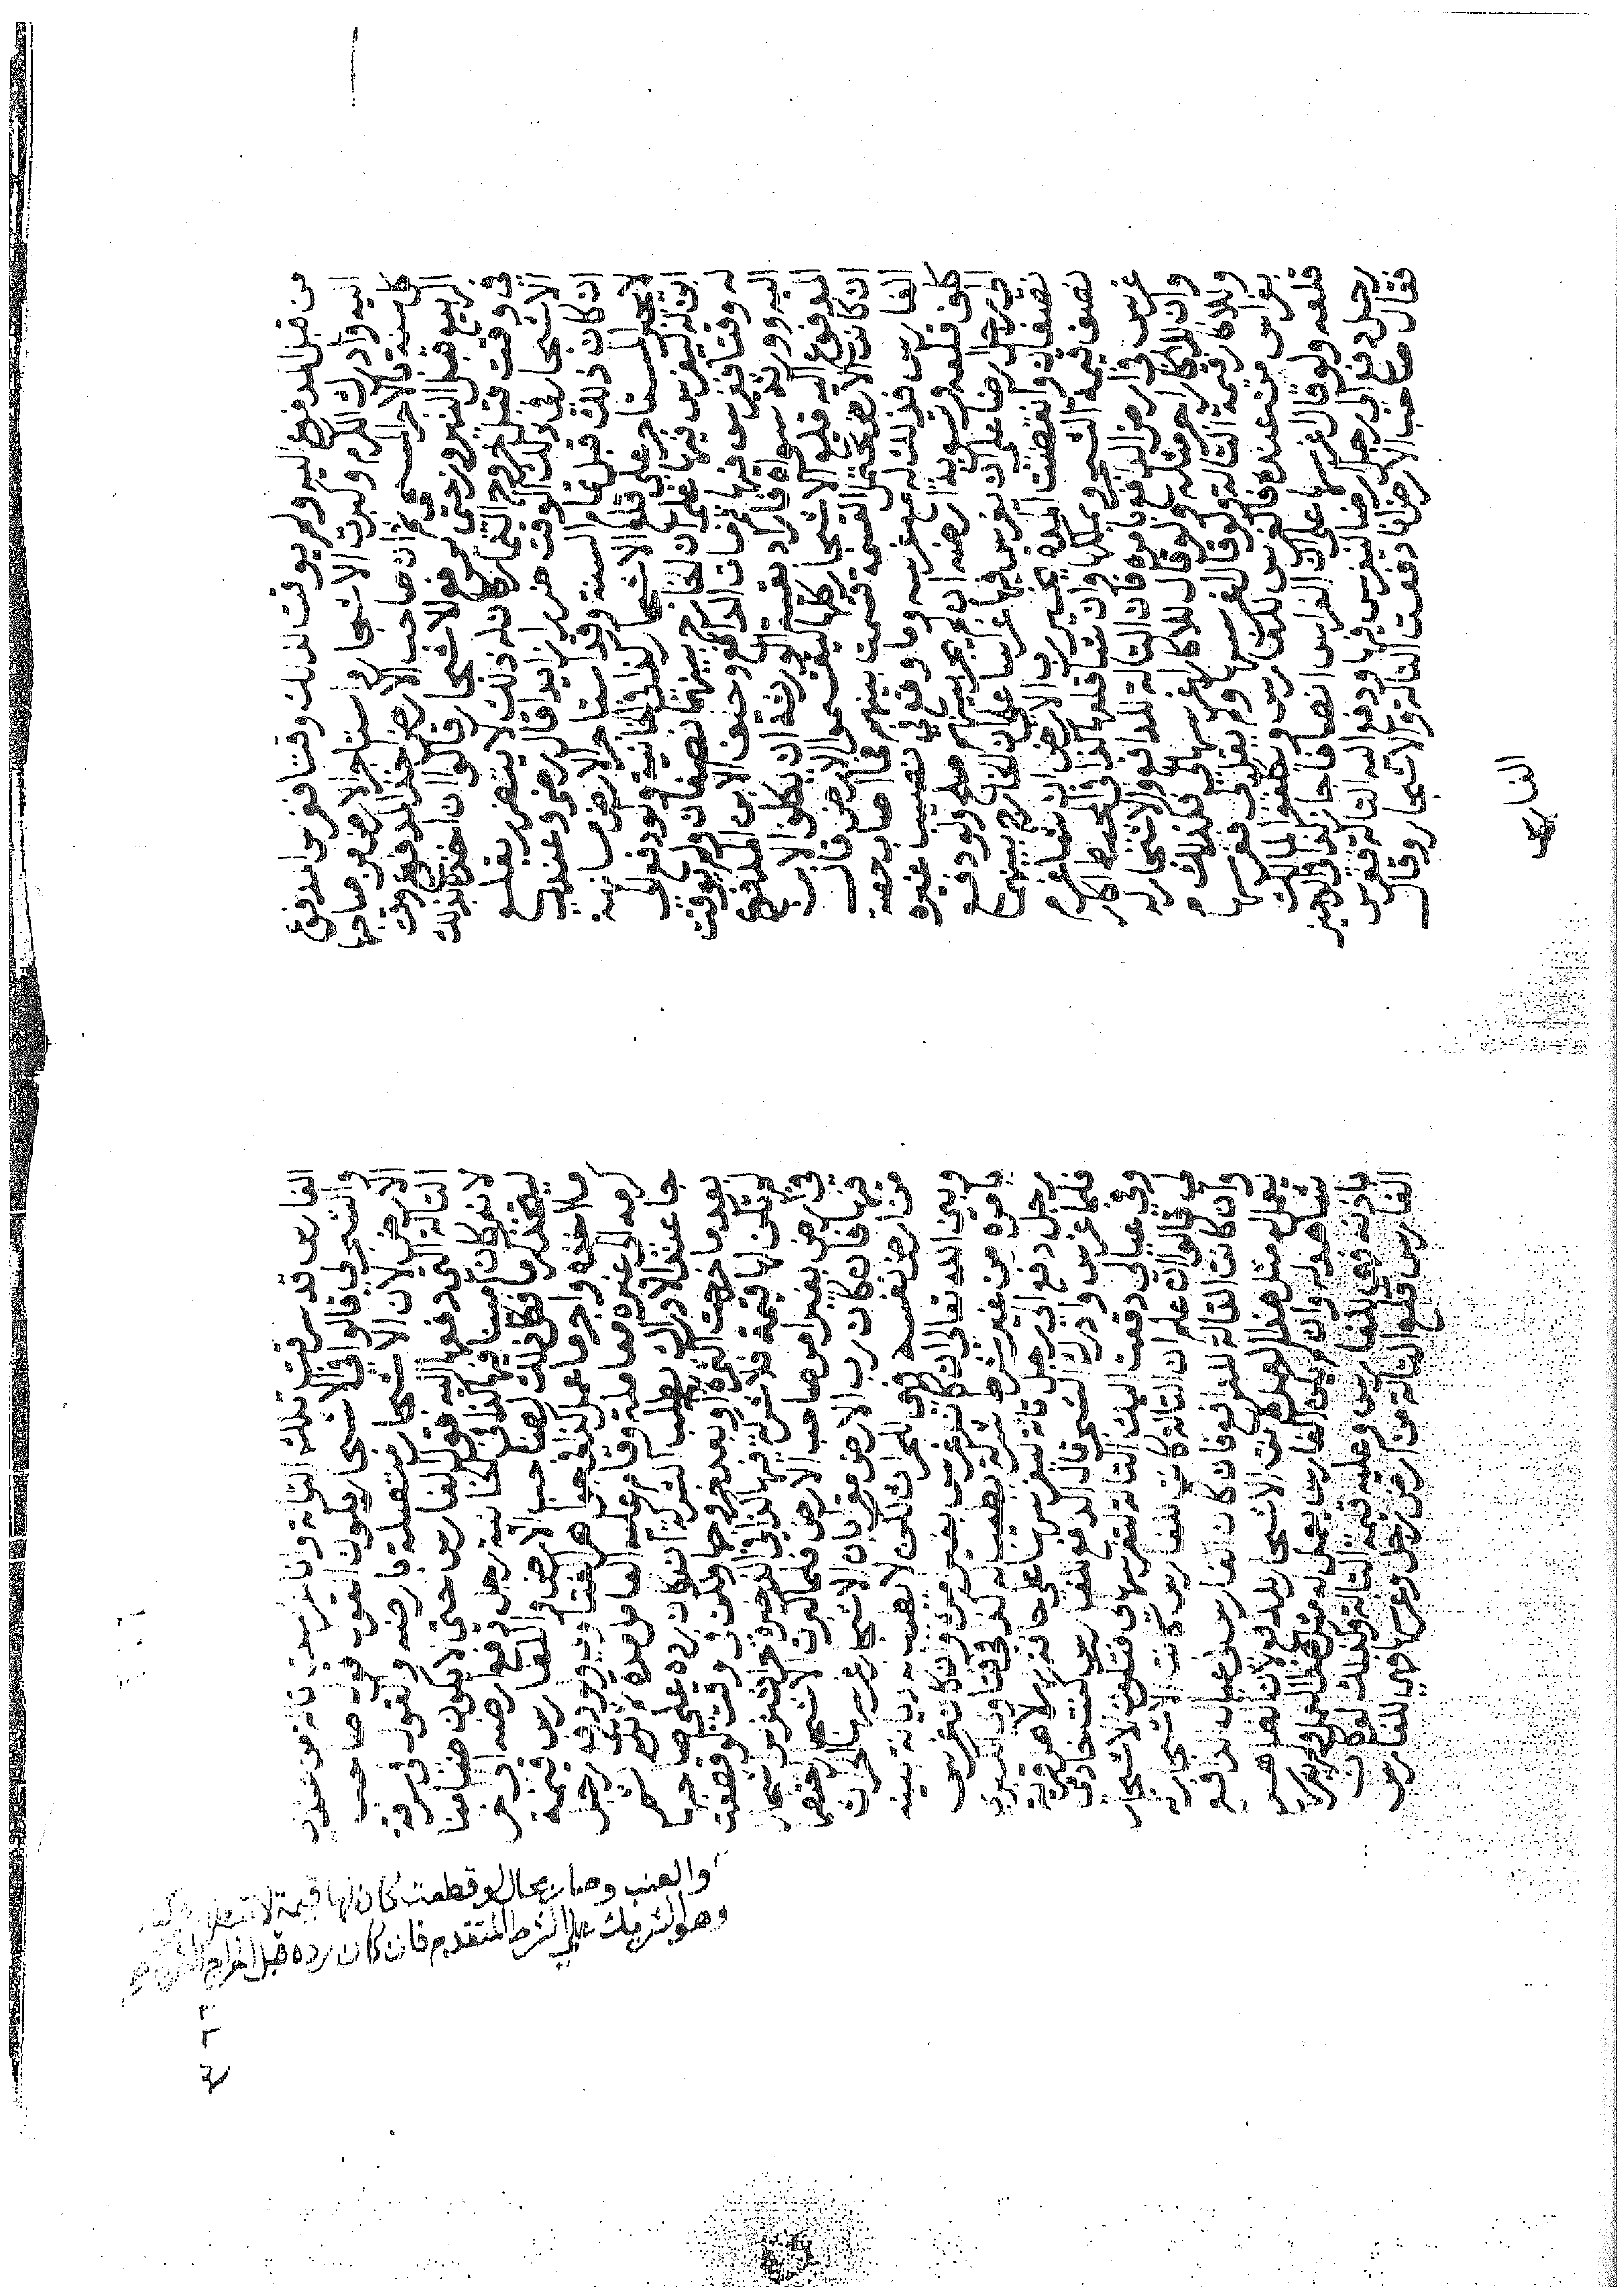 من قبل المدفوع اليه ولم يوقت لذلك وقتا فغرس المدفوع
اليه وادرك الكرم وكبرت الاشجار واستاجر الارض من صاحبها
كل سنة باجر مسمى ثم ان صاحب الارض اخذ المدفوع وقت
الربيع قبل النيروز حتى يرفع الاشجار قالوا ان اخذه بذلك
في وقت قبل خروج الثمار كان له ذلك لا يتضرر بقلع
الاشجار في ذلك الوقت ضررا زايدا قال رضي وعندي
ان كان ذلك قبل تمام السنة وقد استاجر الارض مسانهة
لا يجبر المستاجر على قلع الاشجار كذا في الخانية ولو دفع الى
ابن له ليغرس فيها على ان الخارج بينهما نصفان ولم يوقت
له وقتا فغرس فيها ثم مات الدافع وخلف الابن المدفوع
اليه وورثة سواه فاراد بقية الورثة ان يكلف الابن
المدفوع اليه قلع الاشجار كلها ليقتسموا الارض قال
ان كانت الارض تحتمل القسمة قسمت بينهم فما اصاب حصة
الغارس فذلك له مع غرسه وما وقع في نصيب غيره
كلف قلعه وتسوية ارضه ان لم يجر بينهم صلح ولو دفع
الى رجل ارضا على ان يغرس فيها غراسا على ان الخارج بينهما
نصفان وانقضت المدة يخير رب الارض ان شاء غرم
نصف قيمة الشجر ويملكها وان شاء قلعها كذا في المحيط اكار
غرس في ارض الدافع بامره فان التالة للدافع والاشجار له
وان للاكار اجر مثله ولو قال للاكار اغرسها لي فكذلك
وللاكار قيمة التالة ولو قال اغرسها ولم يقل لي فغرسها
بغراس من عنده فالغرس للغارس ويكلفه المالك
قلعه ولو قال اغرسها على ان الغراس انصافا جاز كذا في الوجيز
رجل دفع الى رجل ارضا ليغرس فيها ودفع اليه التالة فغرس
فقال صاحب الارض انا دفعت التالة والاشجار وقال
الغارس
الغارس قد سرقت تلك التالة وانا غرست تالة من عندي
والشجر لي قالوا في الاشجار يكون القول قول صاحب
الارض لان الاشجار متصلة بارضه والقول في سرقة
التالة التي دفعها اليه قول الغارس حتى لا يكون ضامنا
لانه كان امينا فيها كذا في الخانية رجل دفع ارضه الى اخر
ليتخذ كرما فكان ذلك لصاحب الارض وللغارس قيمة
ما اخذه واجر ما عمل كذا في جواهر الفتاوى ولو دفع رجل
كرمه الى غيره معاملة وقام عليه العامل مدة ثم ترك ثم
جاء عند الادراك يطلب الشركة ان كان رده على صاحبها
بعد ما خرجت الثمرة او بعد خروجها ولكن في وقت لو قطعت
لم تكن لها قيمة فلا شركة فيها كذا في الذخيرة حراث غرس اشجار
في ارض بغير امر صاحب الارض فلما كبرت الاشجار اختصما
فيها فان كان رب الارض مقرا بان الاشجار غرسها الحراث
من ارض نفسه فهي للحراث لكن لا يطيب له ديانة بينه
وبين الله تعالى ان كان غرس بغير امره وان كان غرس
بامره من غير شرط شركة يطيب له كذا في فتاوى
رجل دفع الى رجل تالة ليغرسها على حافة نهر لاهل قرية
فلما غرس وادرك الشجر قال الدافع للغارس كنت خادمي
وفي عيالي دفعت اليك التالة لتغرسها لي فتكون الاشجار
لي قالوا ان علم ان التالة كانت للغارس كانت الاشجار له
وان كانت التالة للدافع فان كان الغارس في عيال الدافع
يعمل له مثل هذا العمل كانت الاشجار للدافع لان الظاهر
شاهد له وان لم يكن الغارس يعمل له مثل هذا العمل ولم يغرسها
باذنه فهي للغارس وعليه قيمة التالة وكذلك لو كان
الغارس قلع التالة من ارض رجل وغرسها فهي للغارس
والعنب وصار بحال لو قطعت كان لها قيمة لا
وهو الشريك على الشرط المتقدم فان كان رده قبل اخراج